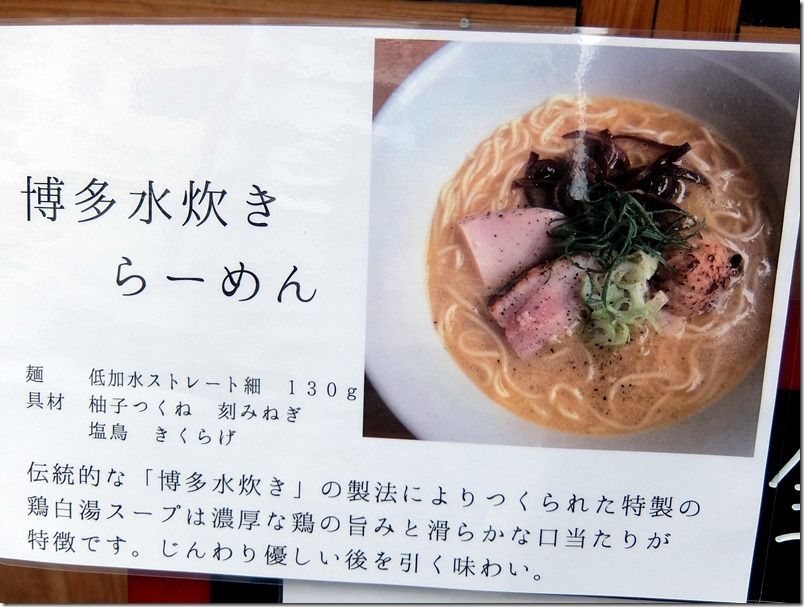 博多水炊き
らーめん
麺　低加水ストレート細　130g
具材　柚子つくね　刻みねぎ
塩鳥　きくらげ
伝統的な「博多水炊き」の製法によりつくられた特製の
鶏白湯スープは濃厚な鶏の旨みと滑らかな口当たりが
特徴です。じんわり優しい後を引く味わい。